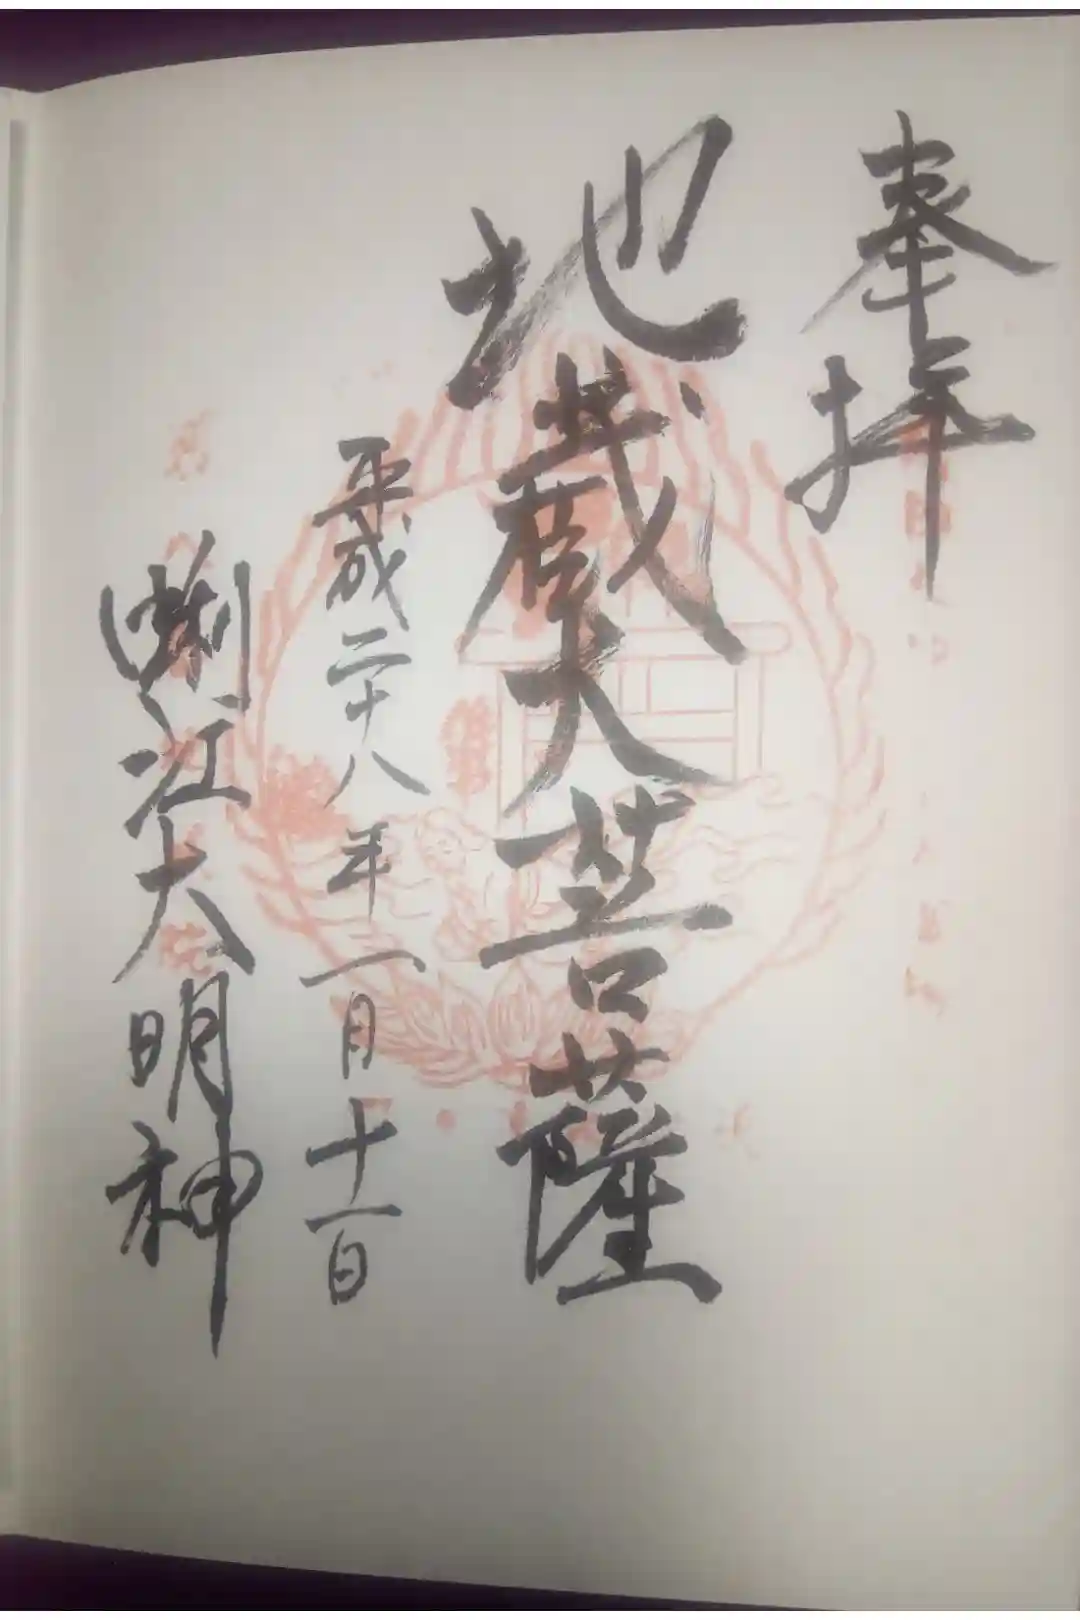 奉拝
地蔵大菩薩
平成二十八年二月十一日
蜊江大明神